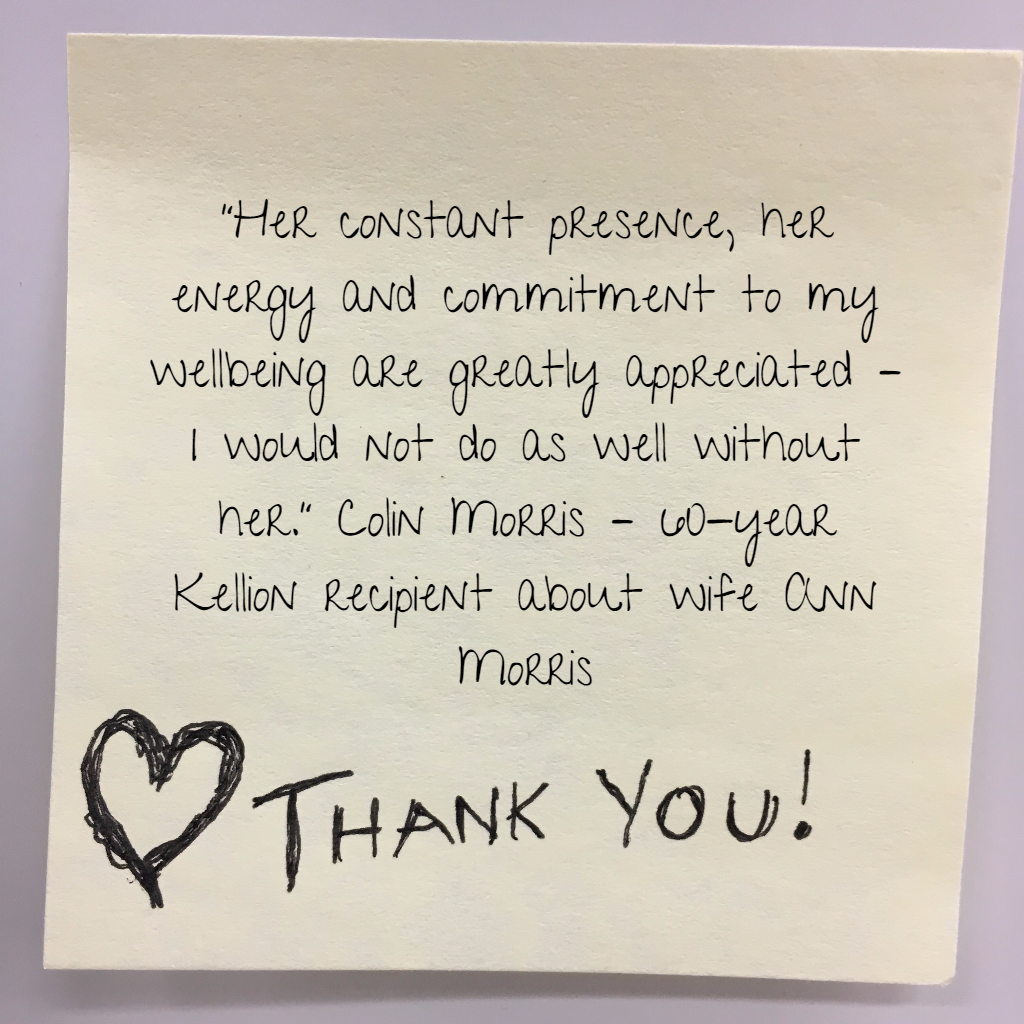 "Her constant presence, her
energy and commitment to my
wellbeing are greatly appreciated -
I would not do as well without
her." Colin Morris - 60-year
Kellion recipient about wife Ann
Morris
THANK YOU!